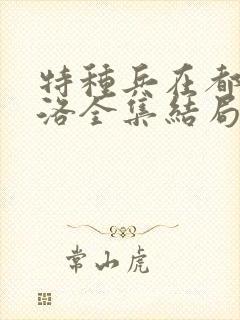 特種兵在都
洛全集結局
常山虎